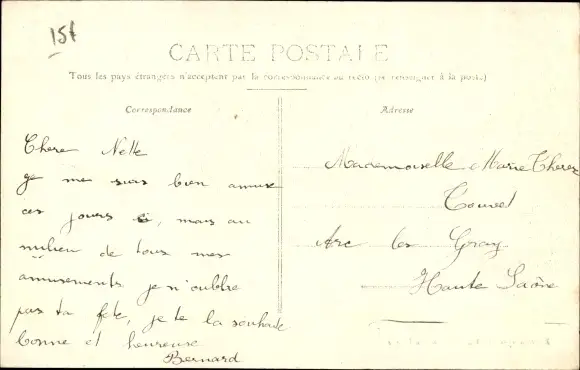 15f
CARTE POSTALE
Tous les pays étrangers n'acceptent pas la correspondance au recto (se renseigner à la poste)
Correspondance
Adresse
Chere Nette
je me suis bien amusé
ces jours ci, mais au
milieu de tous mes
amusements je n'oublie
pas ta fete, je te la souhaite
bonne et heureuse
Bernard
Mademoiselle Marie Therez
Arc les Gray
Haute Saône